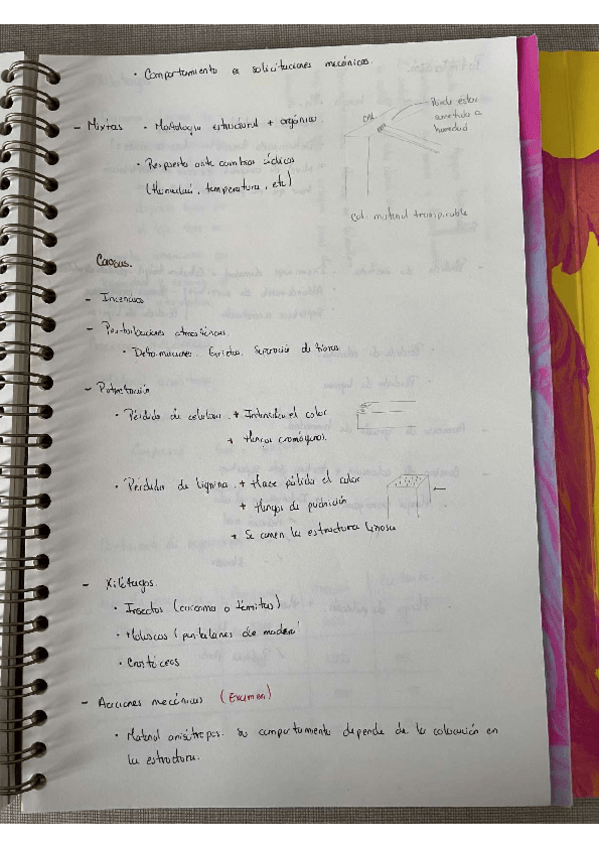 · Comportamiento a solicitaciones mecánicas.
- Mixtas · Morfología estructural + orgánica.
· Respuesta ante cambios cíclicos
(Humedad, temperatura, etc)
Puede estar
sometida a
humedad
Col. material transpirable
Causas.
- Incendios
- Perturbaciones atmosféricas
· Deformaciones. Grietas. Separación de fibras
- Putrefacción
· Pérdida de celulosa. + Intensifica el color
+ Hongos cromógenos.
· Pérdida de lignina. + Hace pálido el color
+ Hongos de pudrición
+ Se comen la estructura leñosa
- Xilófagos.
· Insectos (carcoma o térmitas)
· Moluscos
· Crustáceos
- Acciones mecánicas (Examen)
· Material anisótropo. Su comportamiento depende de la colocación en
la estructura.